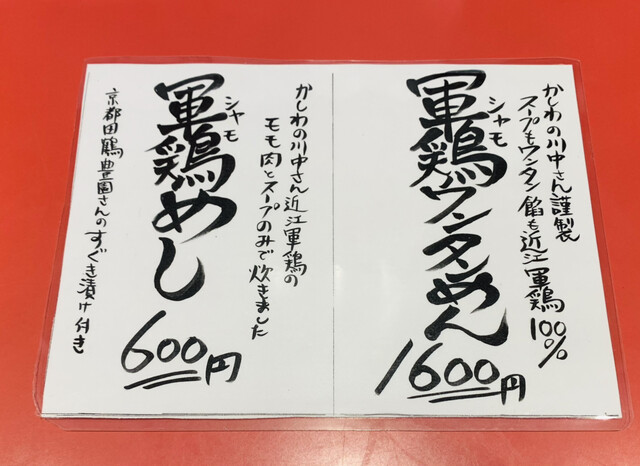 かしわの川中さん謹製
スープもワンタン餡も近江軍鶏100%
軍鶏ワンタンめん
シャモ
1600円
かしわの川中さん近江軍鶏の
モモ肉とスープのみで炊きました
軍鶏めし
シャモ
600円
京都田鶴豊園さんのすぐき漬け付き